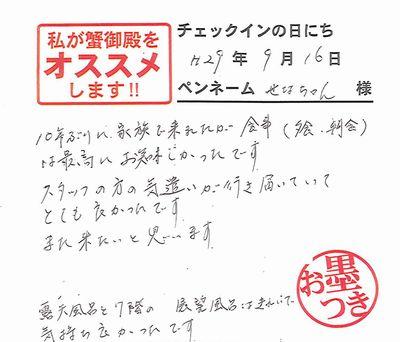 私が蟹御殿を
オススメ
します!!
チェックインの日にち
H29年 9月 16日
ペンネーム せなちゃん 様
10年ぶりに、家族で来れたが 食事 (夕食、朝食)
は最高に お美味しかったです
スタッフの方の気遣いが行き届いていって
とても良かったです
また来たいと思います
お墨つき
露天風呂と7階の 展望風呂は
気持ち良かったです